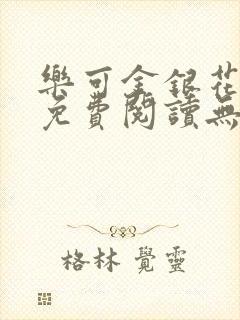 樂可金銀花
免費閱讀無
格林 覺靈